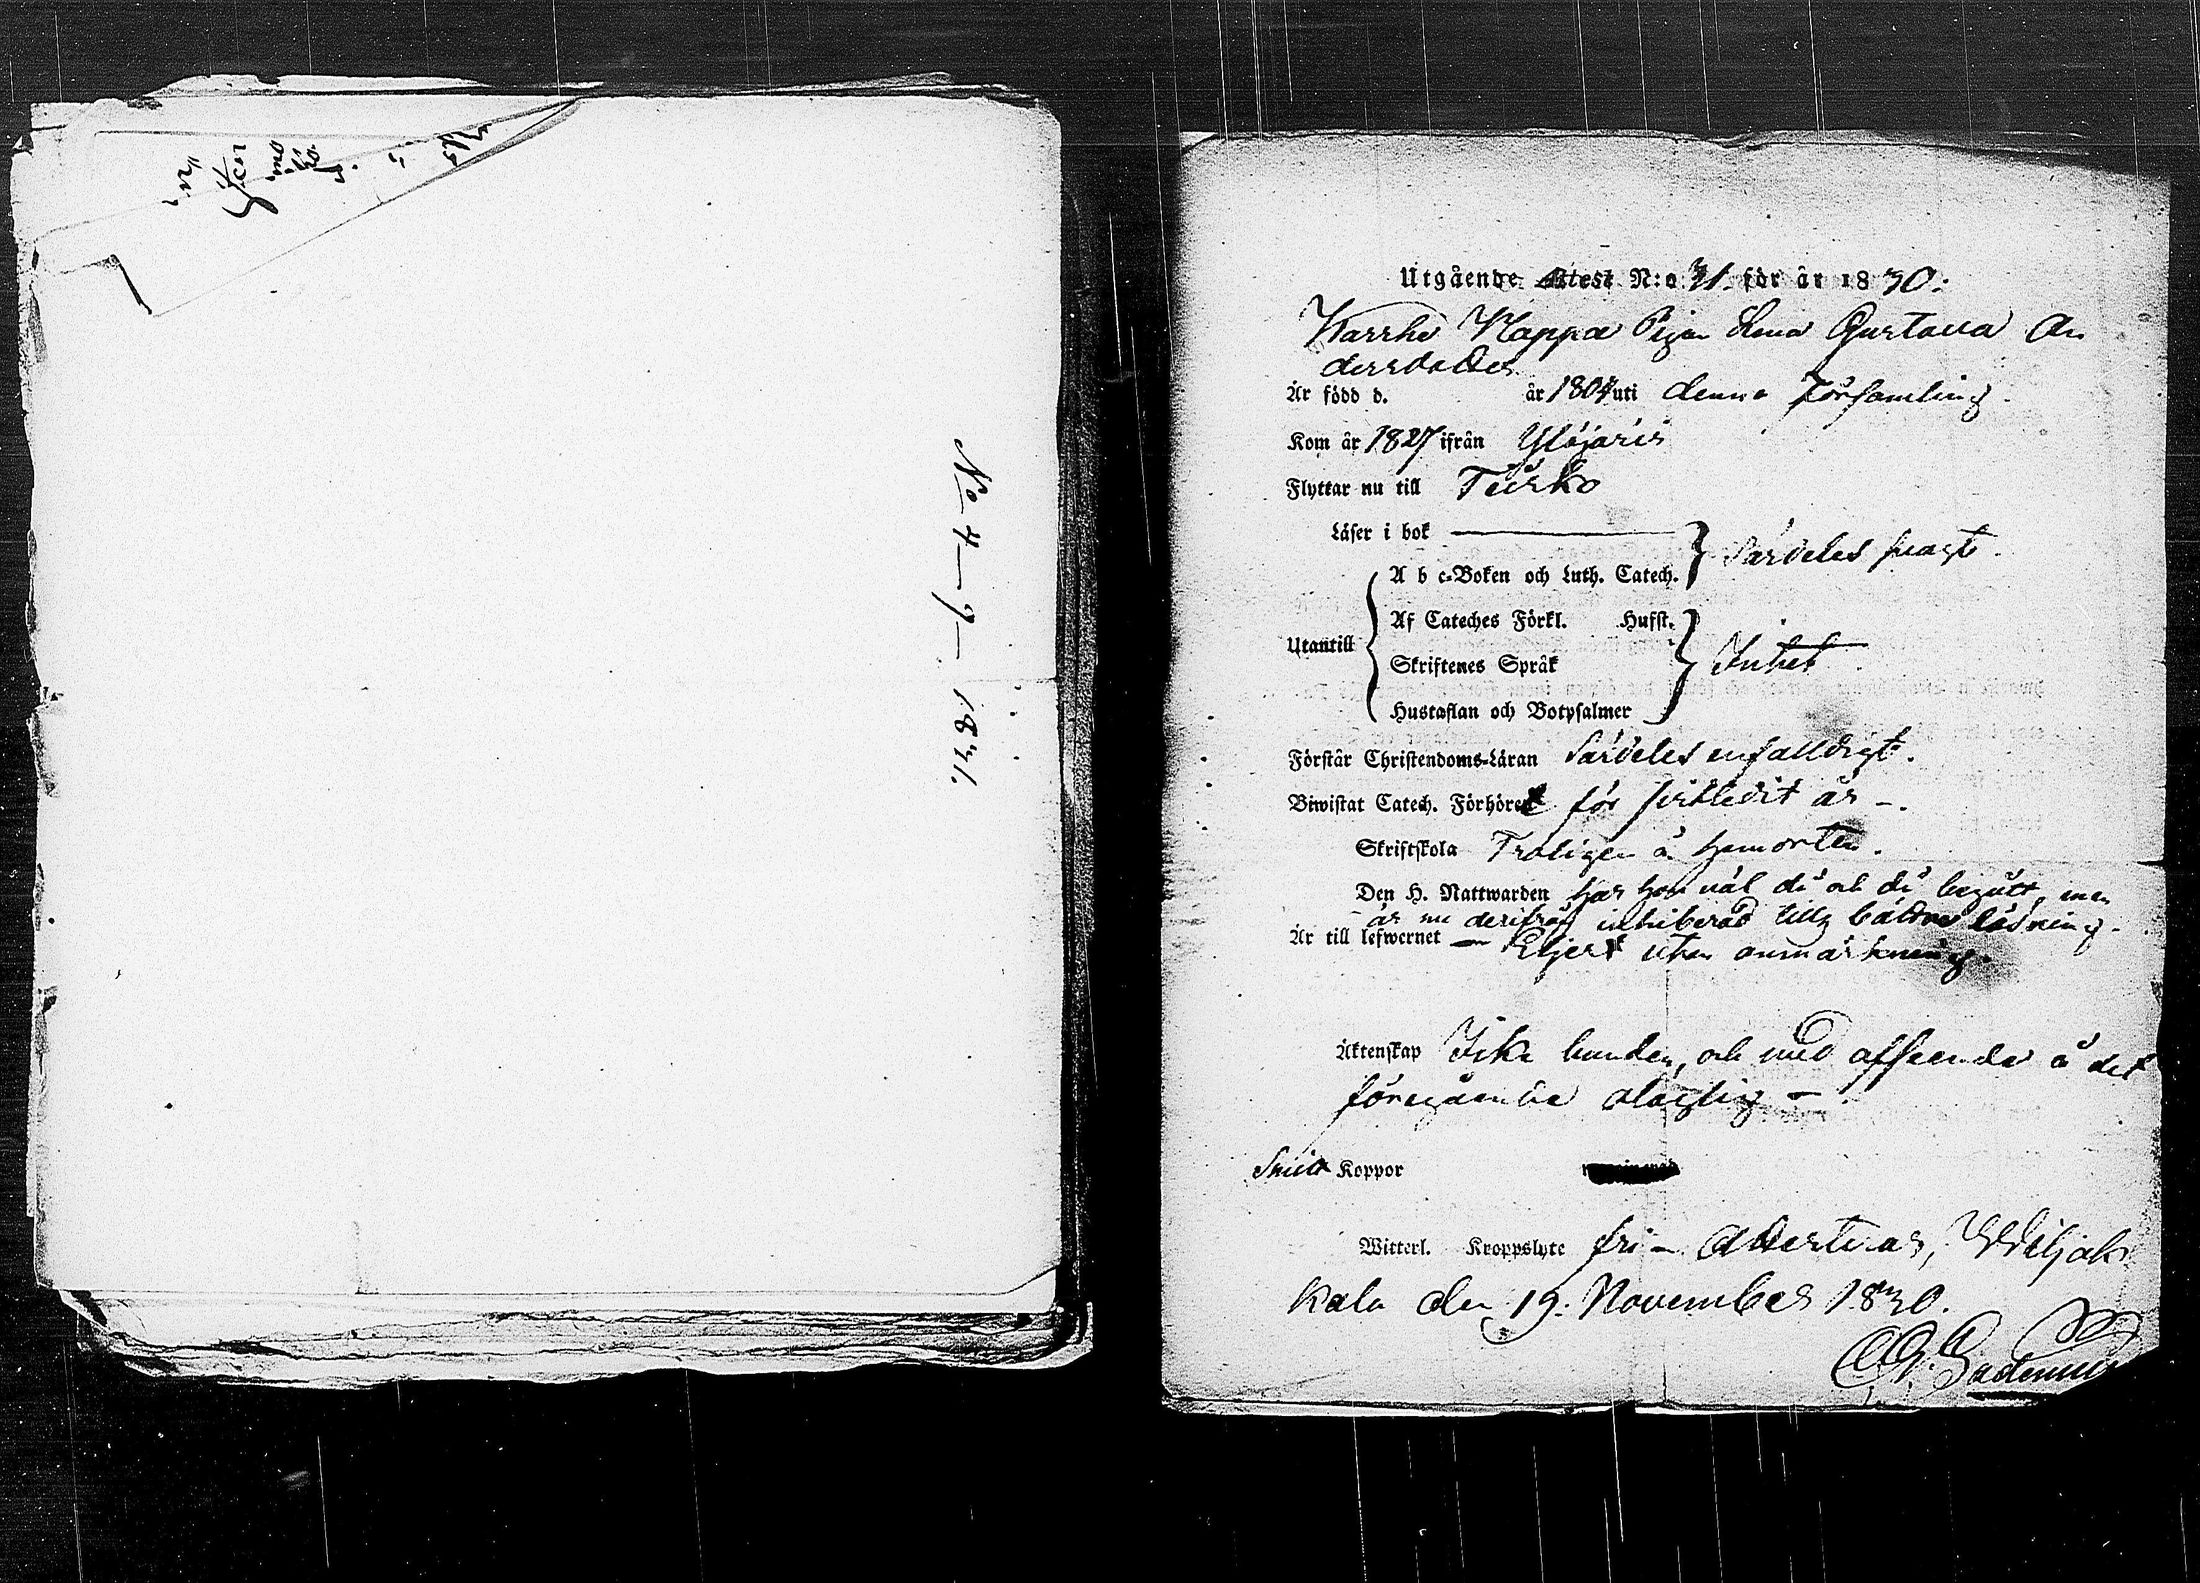 No 4 — 9 — 1831.
Utgående Attest N:o 31. för år 1830:
Warrho Nappa Pigan Lena Gustava An
dersdotter
Är född d. år 1804 uti denna Församling.
Kom år 1827 ifrån Ylöjärvi
Flyttar nu till Turko
Läser i bok
A b c-Boken och Luth. Catech. Särdeles svagt.
Af Cateches Förkl. Husst.
Utantill
Skriftenes Språk Intet
Hustaflan och Botpsalmer
Förstår Christendoms-Läran Särdeles enfalldigt.
Biwistat Catech. Förhöret för sistledit år —.
Skriftskola Troligen å hemorten.
Den H. Nattwarden har hon väl då och då begått, men
är nu derifrån inhiberad till bättre läsning.
Är till lefwernet — Eljest utan anmärkning.
Äktenskap Icke bunden, och med afseende å det
föregående olaglig —.
Haft Koppor
Witterl. Kroppslyte fri — Attesteras, Wiljak
kala den 19. November 1830.